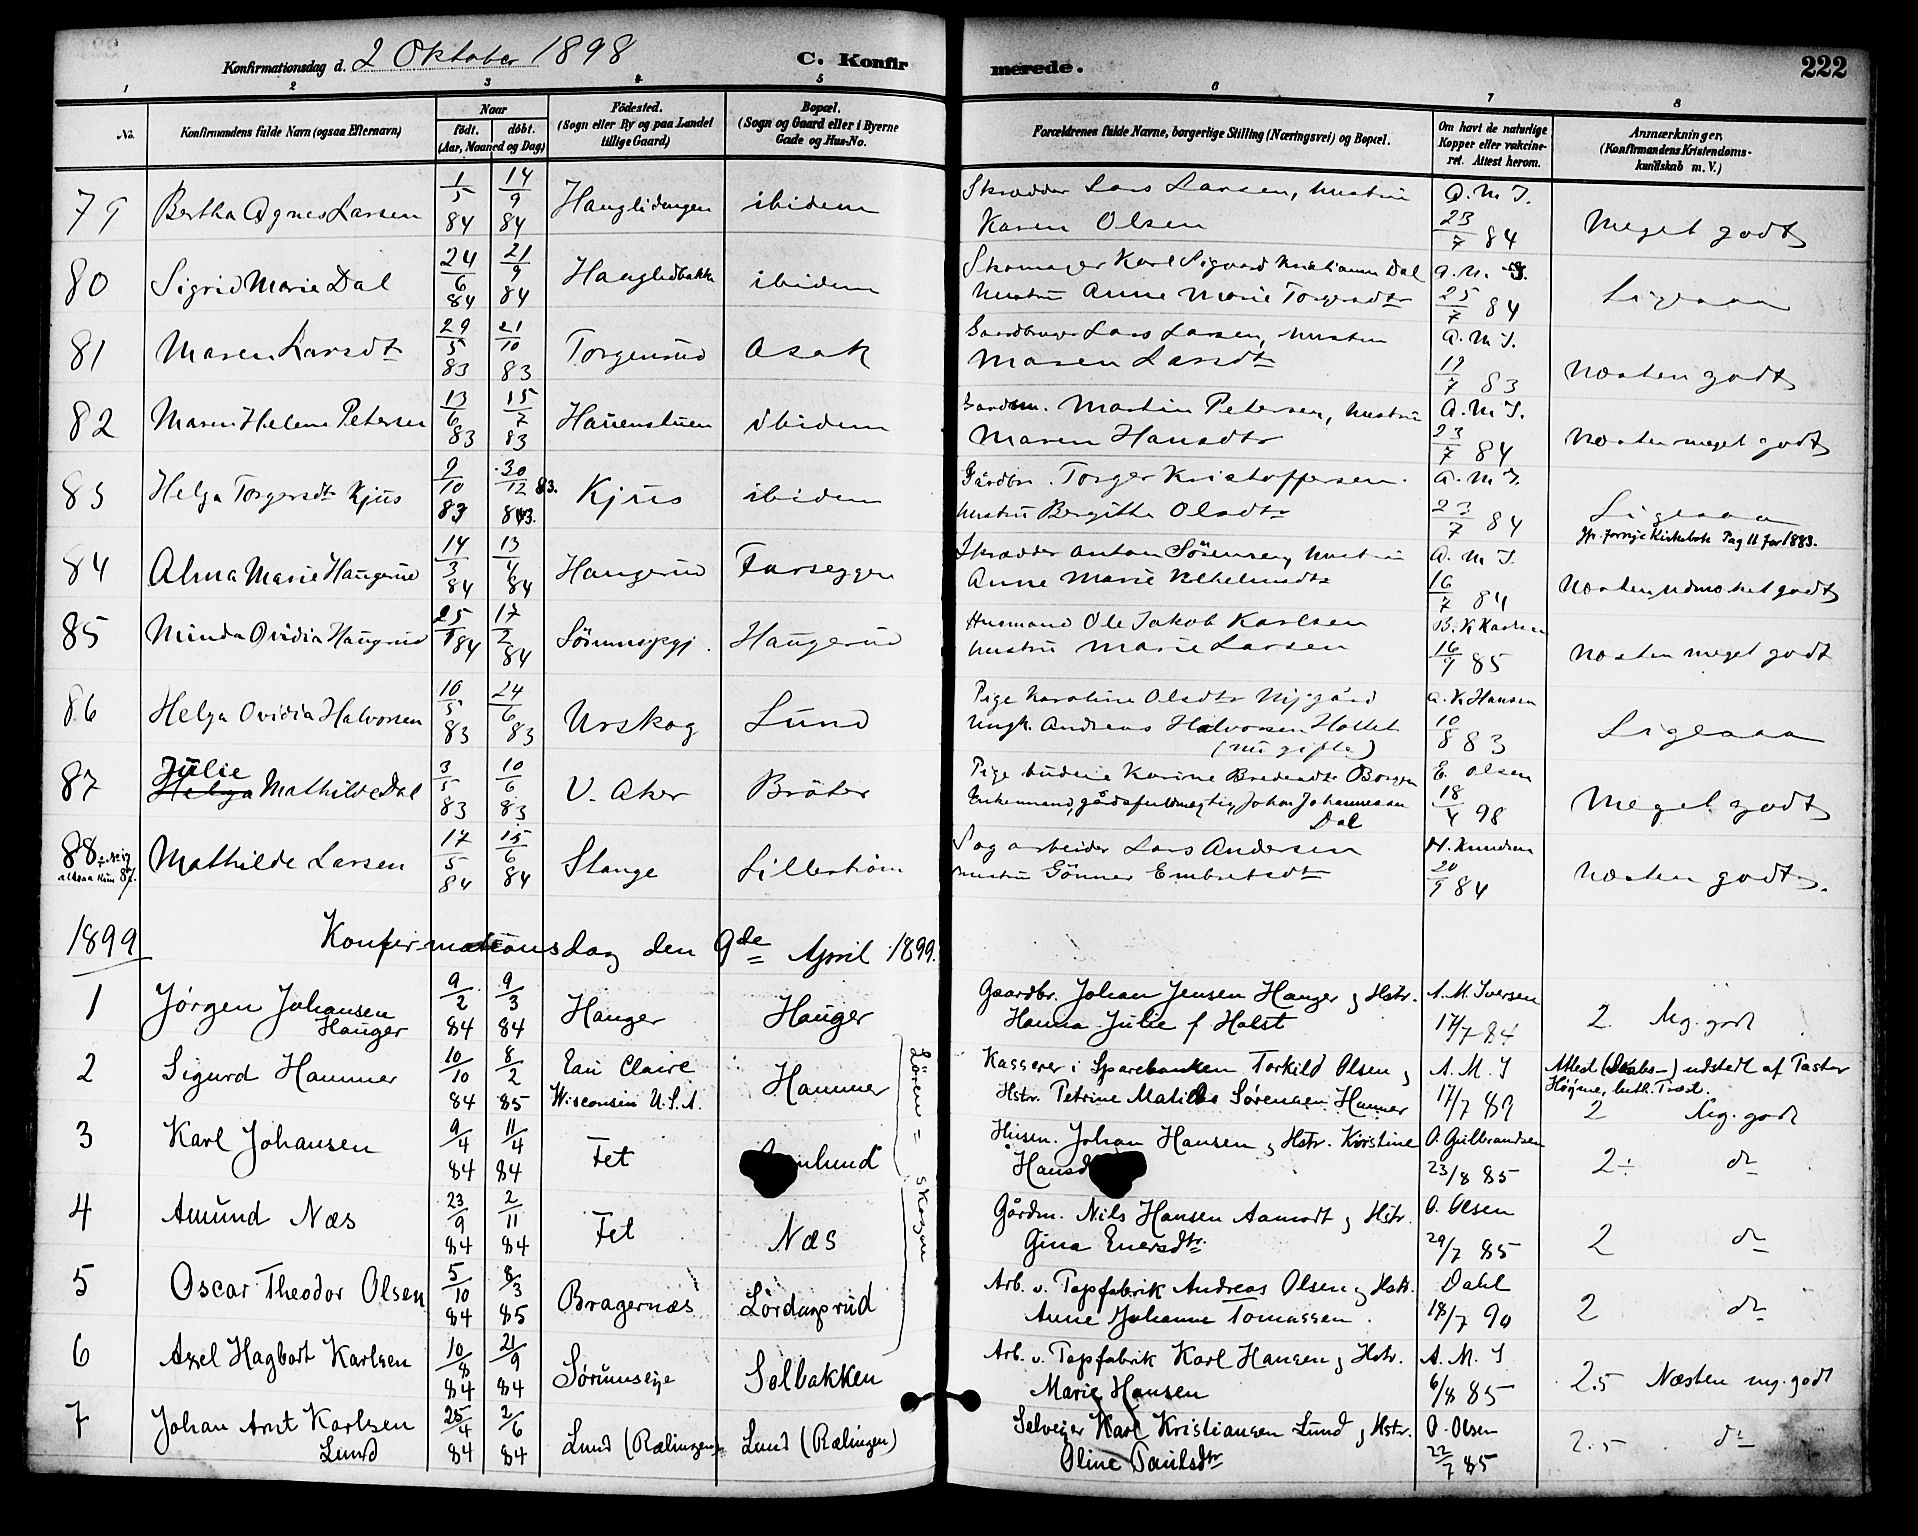 Konfirmationsdag d. 2 Oktober 1898 C. Konfir merede. 222
1 2 3 4 5 6 7 8
No. Konfirmandens fulde Navn (ogsaa Efternavn) Naar født. døbt. (Aar, Maaned og Dag) Fødested. (Sogn eller By og paa Landet tillige Gaard) Bopæl. (Sogn og Gaard eller i Byerne Gade og Hus-No. Forældrenes fulde Navne, borgerlige Stilling (Næringsvei) og Bopæl. Om havt de naturlige Kopper eller vakcineret. Attest herom. Anmærkninger. (Konfirmandens Kristendomskundskab m. V.)
79 Bertha Agnes Larsen 1/5 84 14/9 84 ibidem Skrædder Lars Larsen, Hustru A. M. I.
Karen Olsen 23/7 84 Meget godt
80 Sigrid Marie Dal 24/6 84 21/9 84 Hauglidbakke ibidem Skomager Karl Sigvard Kristiansen Dal A. M. I.
Hustru Anne Marie Torgersdtr 25/7 84 Ligesaa
81 Maren Larsdtr 29/5 83 21/10 83 Torgensrud Asak Gaardbruger Lars Larsen, Hustru A. M. I.
Maren Larsdtr 17/7 83 Næsten godt
82 Maren Helene Petersen 13/6 83 15/7 83 ibidem Gaardm. Martin Petersen, Hustru A. M. I.
Maren Hansdtr 23/7 84 Næsten meget godt
83 Helga Torgersdtr Kjus 9/10 83 30/12 83. Kjus ibidem Gårdbr. Torger Kristoffersen. A. M. I.
Hustru Bergitte Olsdtr 23/7 84 Ligesaa
jfr. forrige Kirkebok Pag 11 for 1883.
84 Alma Marie Haugerud 14/3 84 13/4 84 Haugerud Farseggen Skrædder Anton Sörensen, Hustru A. M. I.
Anne Marie 16/7 84 Næsten udmærket godt
85 Minda Ovidia Haugerud 25/1 84 17/2 84 Haugerud Husmand Ole Jakob Karlsen B. K. Karlsen
Hustru Marie Larsen 16/9 85 Næsten meget godt
86 Helga Ovidia Halvorsen 10/5 83 24/6 83 Urskog Lund Pige Karoline Olsdtr Nygård A. K. Hansen
Ungk. Andreas Halvorsen Holtet 10/8 83 Ligesaa
(nu gifte)
87 Julie Helga Mathilde Dal 3/5 83 10/6 83 V. Aker Bråter Pige Karine E. Olsen
Enkemand, gårdsfuldmægtig, Johan Johannessen Dal 18/4 98 Meget godt
88 altsaa kun 87. Mathilde Larsen 17/5 84 15/6 84 Stange Lilleström Sagarbeider Lars Andersen H. Knudsen
Hustru Gönner Embretsdtr 20/9 84 Næsten godt.
1899 Konfirmationsdag den 9de April 1899.
1 Jørgen Johansen Hauger 9/2 84 9/3 84 Hauger Hauger Gaardbr. Johan Jensen Hauger og Hstr. A. M. Iversen
Hanna Julie f Holst 17/7 84 2. Mg. godt
2 Sigurd Hammer 10/10 84 8/2 85 Eau Claire Wisconsin U.S.A. Hammer Kasserer i Sparebanken Torkild Olsen og A. M. I
Hstr. Petrine Matilde Sørensen Hammer 17/7 89 Attest (Daabs-) udstedt af Pastor
Høyme, luth. Træd.
2 Mg. godt
Lören = skogen
3 Karl Johansen 9/4 84 11/4 84 Fet Husm. Johan Hansen og Hstr. Kirstine O. Gulbrandsen
23/8 85 2÷ do
4 Amund Næs 23/9 84 2/11 84 Fet Næs Gårdm. Nils Hansen Aamodt og Hstr. O. Olsen
Gina Enersdtr. 29/7 85 2 do
5 Oscar Theodor Olsen 5/10 84 8/3 85 Bragernæs Lördagsrud Arb. v. Tapfabrik Andreas Olsen og Hstr. Dahl
Anne Johanne Tomassen. 18/7 90 2 do
6 Axel Hagbart Karlsen 10/8 84 21/9 84 Sørumseje Solbakken Arb. v. Tapfabrik Karl Hansen og Hstr. A. M. I
Marie Hansen 6/8 85 2.5 Næsten mg. godt
7 Johan Arnt Karlsen Lund 25/4 84 2/6 84 Lund (Rælingen) Lund (Rælingen) Selveier Karl Kristiansen Lund og Hstr. O. Olsen
Oline Paulsdtr 22/7 85 2.5 do